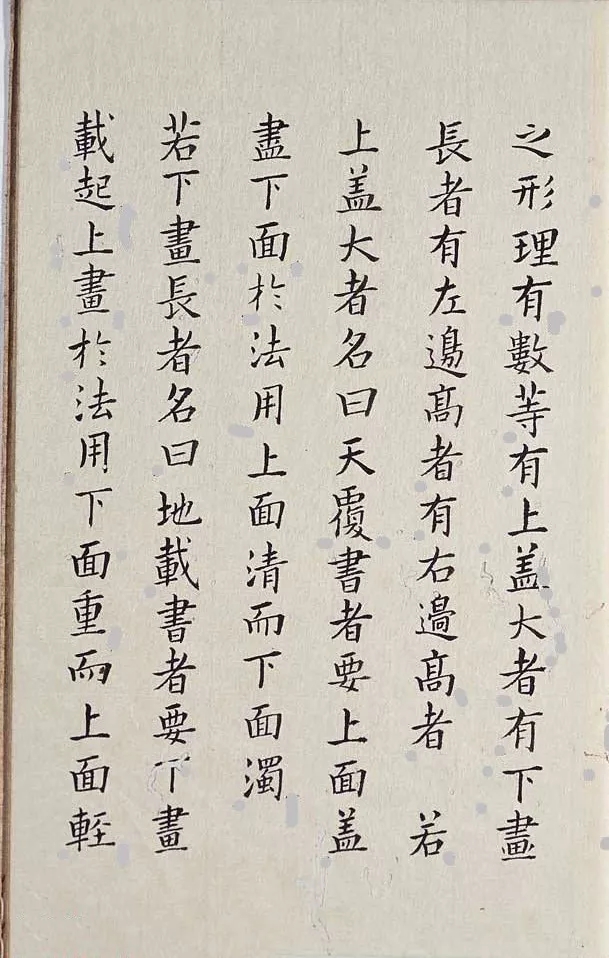 之形理有數等有上盖大者有下畫
長者有左邊髙者有右邊髙者　若
上盖大者名曰天覆書者要上面盖
盡下面於法用上面清而下面濁
若下畫長者名曰地載書者要下畫
載起上畫於法用下面重而上面輕